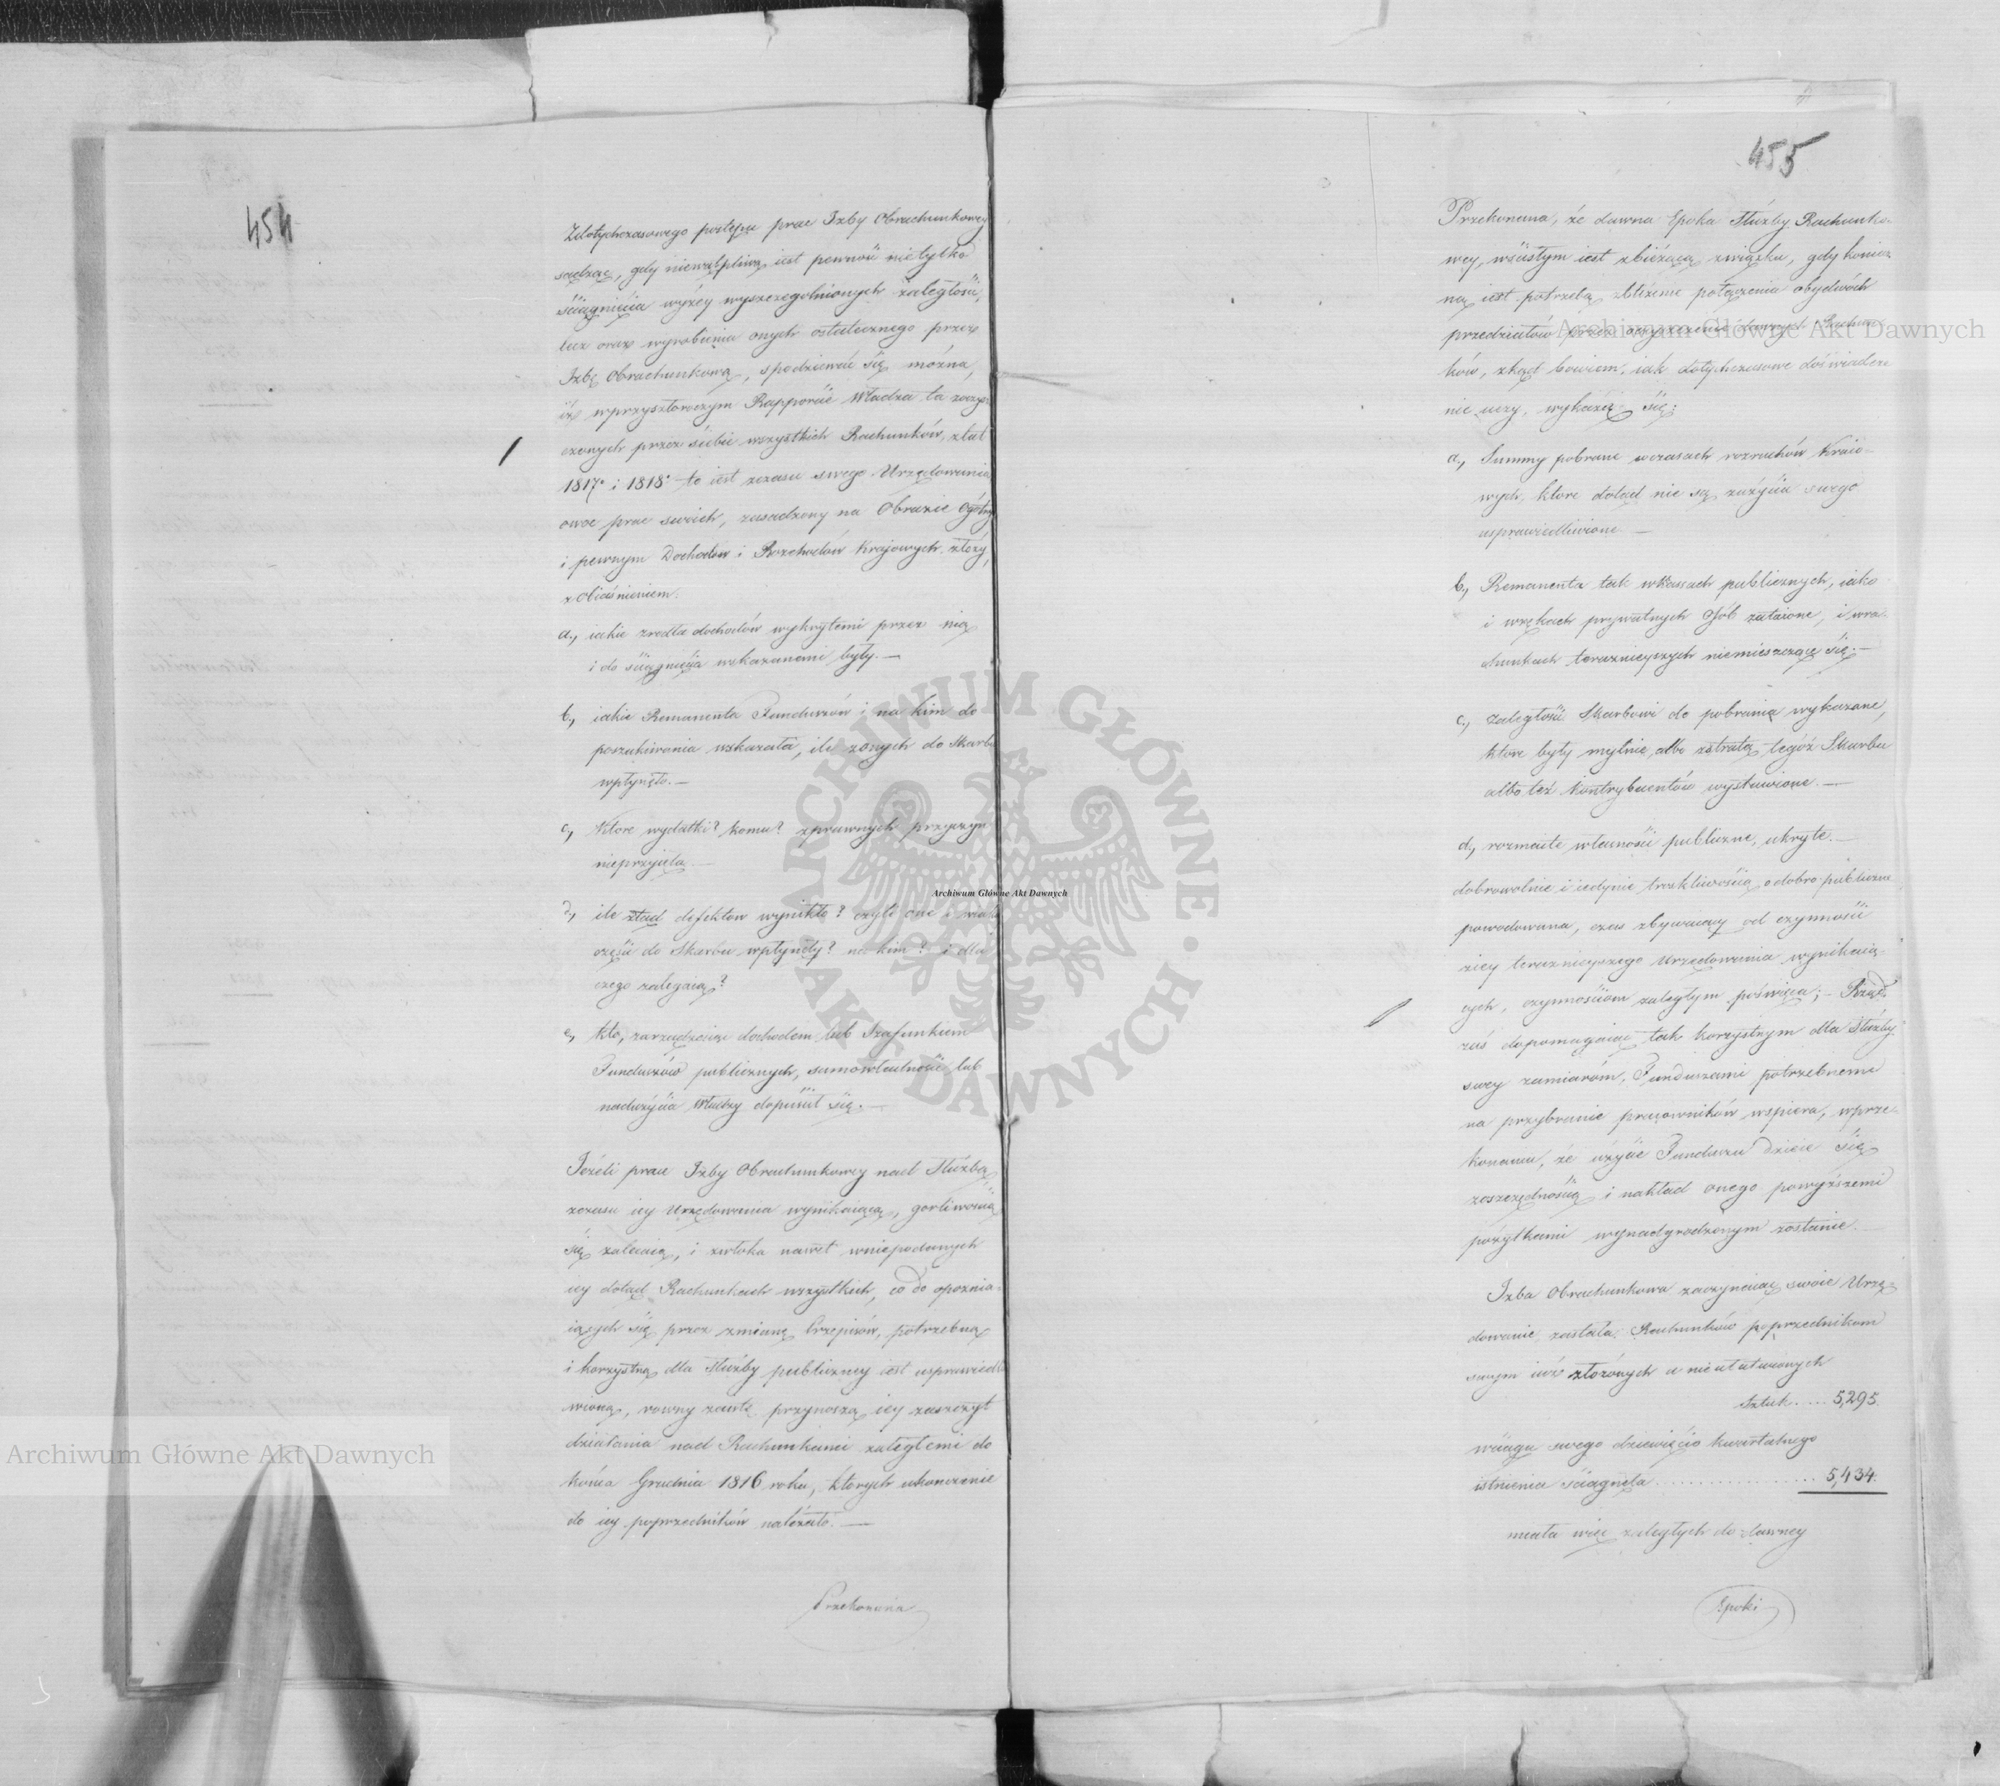 454
Zdotychczasowego postępu prac Izby Obrachunkowey
sądząc, gdy niewątpliwą iest pewność nietylko
ściągnięcia wyżey wyszczegolnionych zaległości,
lecz oraz wyrobienia onych ostatecznego przez
Izbę Obrachunkową, spodziewać się można,
iż wprzyszłorocznym Rapporcie Władza ta zaczą-
czonych przez siebie wszystkich Rachunków, zlat
1817º i 1818º to iest zczasu swego Urzędowania
owoc prac swoich, zasadzony na Obrazie Ogólny
i pewnym Dochodów i Rozchodów Krajowych złoży,
z obiaśnieniem.
a., iakie zrodła dochodów wykrytemi przez nią
i do ściągnięcia wskazanemi były. —
b., iakie Remanenta Funduszów i na kim do
poszukiwania wskazała, ile zonych do Skarbu
wpłynęło. —
c., Ktore wydatki? komu? zprawnych przyczyn
nieprzyięła. —
d., ile ztąd defektow wynikło? czyli one w
części do Skarbu wpłynęły? na kim? i dla
czego zalegaią?
e., kto, zarządzaiąc dochodem lub Szafunkiem
Funduszów publicznych, samowładności lub
nadużycia Władzy dopuścił się. —
Jeżeli prace Izby Obrachunkowey nad Służbą
zczasu iey Urzędowania wynikaiącą, gorliwością
się zalecaią, i zwłoka nawet wniepodanych
iey dotąd Rachunkach wszystkich, co do opoznia-
iących się przez zmianę Przepisów, potrzebną
i korzystną dla Służby publiczney iest usprawiedli
wioną, rowny zawsze przynoszą iey zaszczyt
działania nad Rachunkami zaległemi do
końca Grudnia 1816 roku, których ukończenie
do iey poprzedników należało. —
Przekonana
455
Przekonana, że dawna Epoka Służby Rachunko-
wey, wścisłym iest zbieżącą związku, gdy koniecz
ną iest potrzebą zbliżenie połączenia obydwóch
przedziałów przez oczyszczenie dawnych Rachun-
ków, zkąd bowiem, iak dotychczasowe doświadcze
nie uczy, wykażą się:
a., Summy pobrane wczasach rozruchów Kraio-
wych, ktore dotąd nie są zużycia swego
usprawiedliwione —
b., Remanenta tak wKassach publicznych, iako
i wrękach prywatnych Osób zataione, i wra-
chunkach teraznieyszych niemieszczące się. —
c., Zaległości Skarbowi do pobrania wykazane,
ktore były mylnie, albo zstratą tegóż Skarbu
albo też Kontrybuentów wystawione. —
d., rozmaite własności publiczne, ukryte. —
dobrowolnie i iedynie troskliwością o dobro publiczne
powodowana, czas zbywaiący od czynności
ziey teraznieyszego Urzędowania wynikaią-
cych, czynnościom zaległym poświęca; — Rząd
zaś dopomagaiąc tak korzystnym dla Służby
swey zamiarom, Funduszami potrzebnemi
na przybranie pracowników wspiera, wprze-
konaniu, że użycie Funduszu dzieie się
zoszczędnością i nakład onego powyższemi
pożytkami wynadgrodzonym zostanie. —
Izba Obrachunkowa zaczynaiąc swoie Urzę-
dowanie, zastała Rachunków poprzednikom
swym iuż złożonych a nieułatwionych
Sztuk .... 5,295.
wciągu swego dziewięcio kwartalnego
istnienia ściągnęła ................ 5,434.
miała więc zaległych do dawney
Epoki
Archiwum Główne Akt Dawnych
ARCHIWUM GŁÓWNE
AKT DAWNYCH
Archiwum Główne Akt Dawnych
Archiwum Główne Akt Dawnych